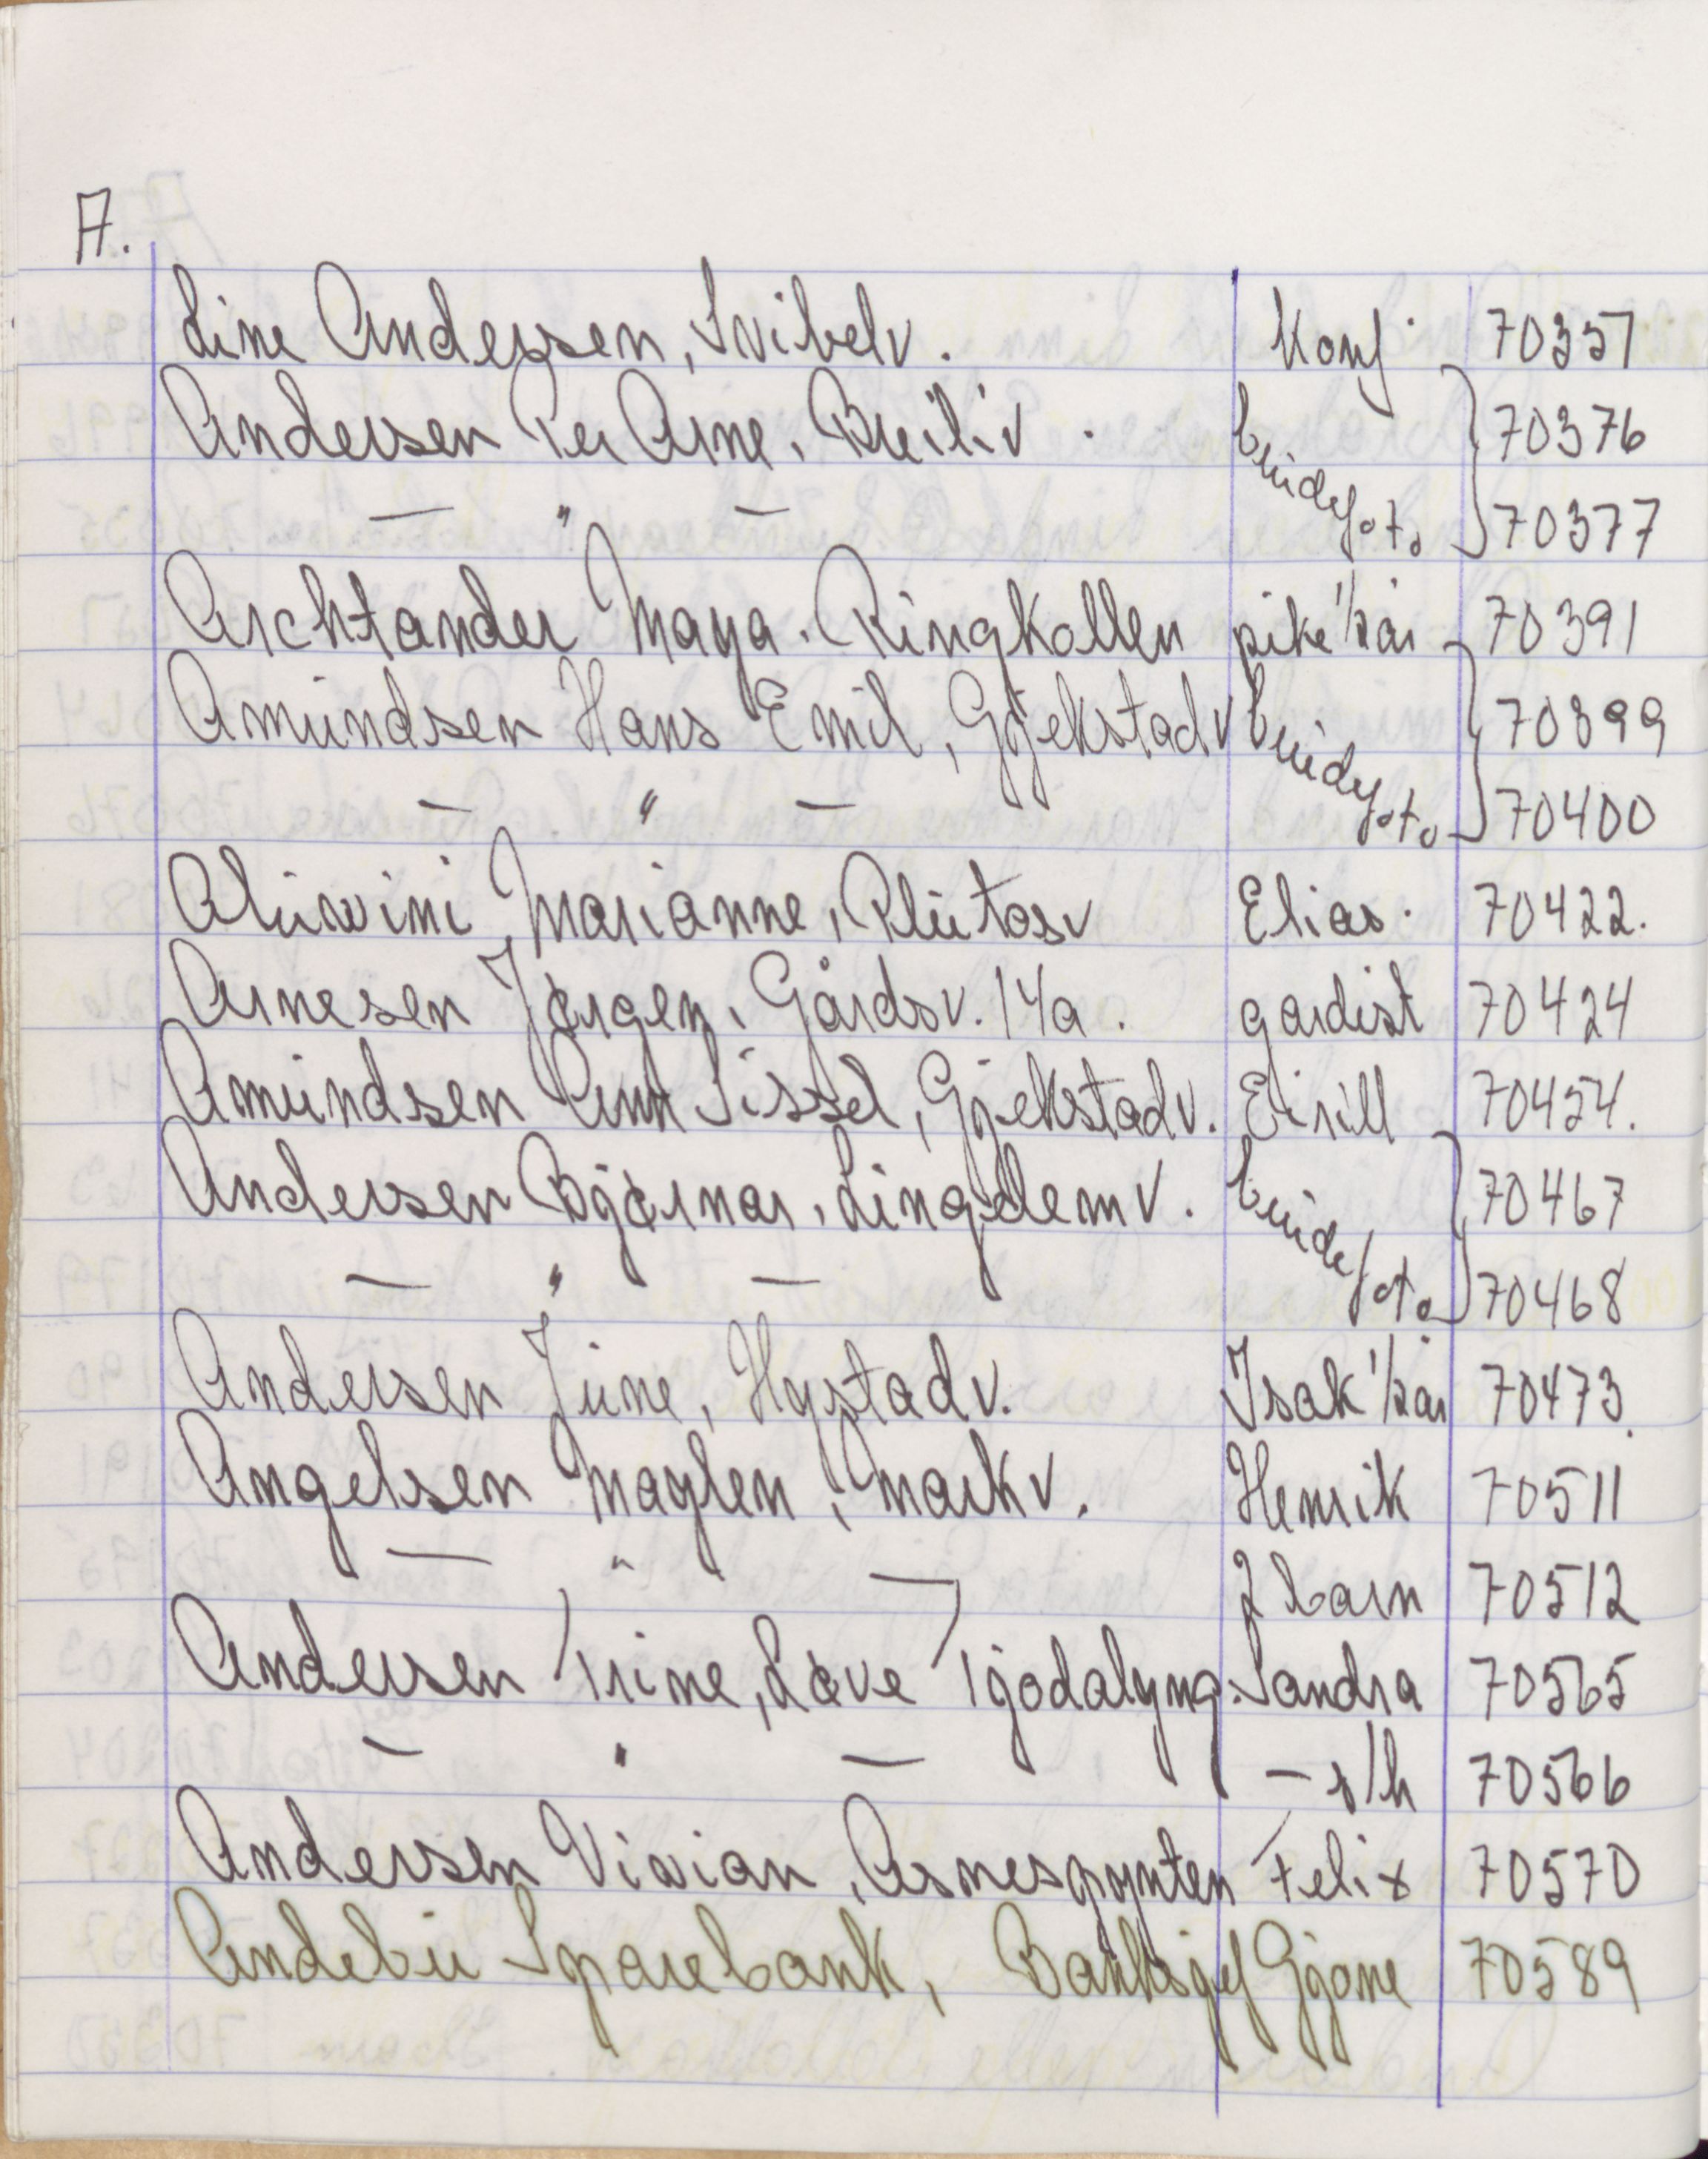 A.
Line Andersen, Svibelv. Konf. 70357
Andersen Per Arne, Breiliv. brudefoto 70376
— " — 70377
Archtander Maya. Ringkollen pike 1/2 år 70391
Amundsen Hans Emil, Gjekstadv brudefoto 70399
— " — 70400
Marianne, Elias. 70422.
Arnesen Jørgen, Gårdsv. 14a. gardist 70424
Amundsen Ann Sissel, Gjekstadv. Eirill 70454.
Andersen Bjørnar, Lingelemv. brudefoto 70467
— " — 70468
Andersen June, Hystadv. Isak 1/2 år 70473.
Angelsen Maylen, Markv. Henrik 70511
— " — 2 barn 70512
Andersen Trine, Løve Tjodalyng. Sandra 70565
— " — — s/h 70566
Andersen Vivian, Asnespynten Felix 70570
Andebu Sparebank, Banksjef Gjone 70589